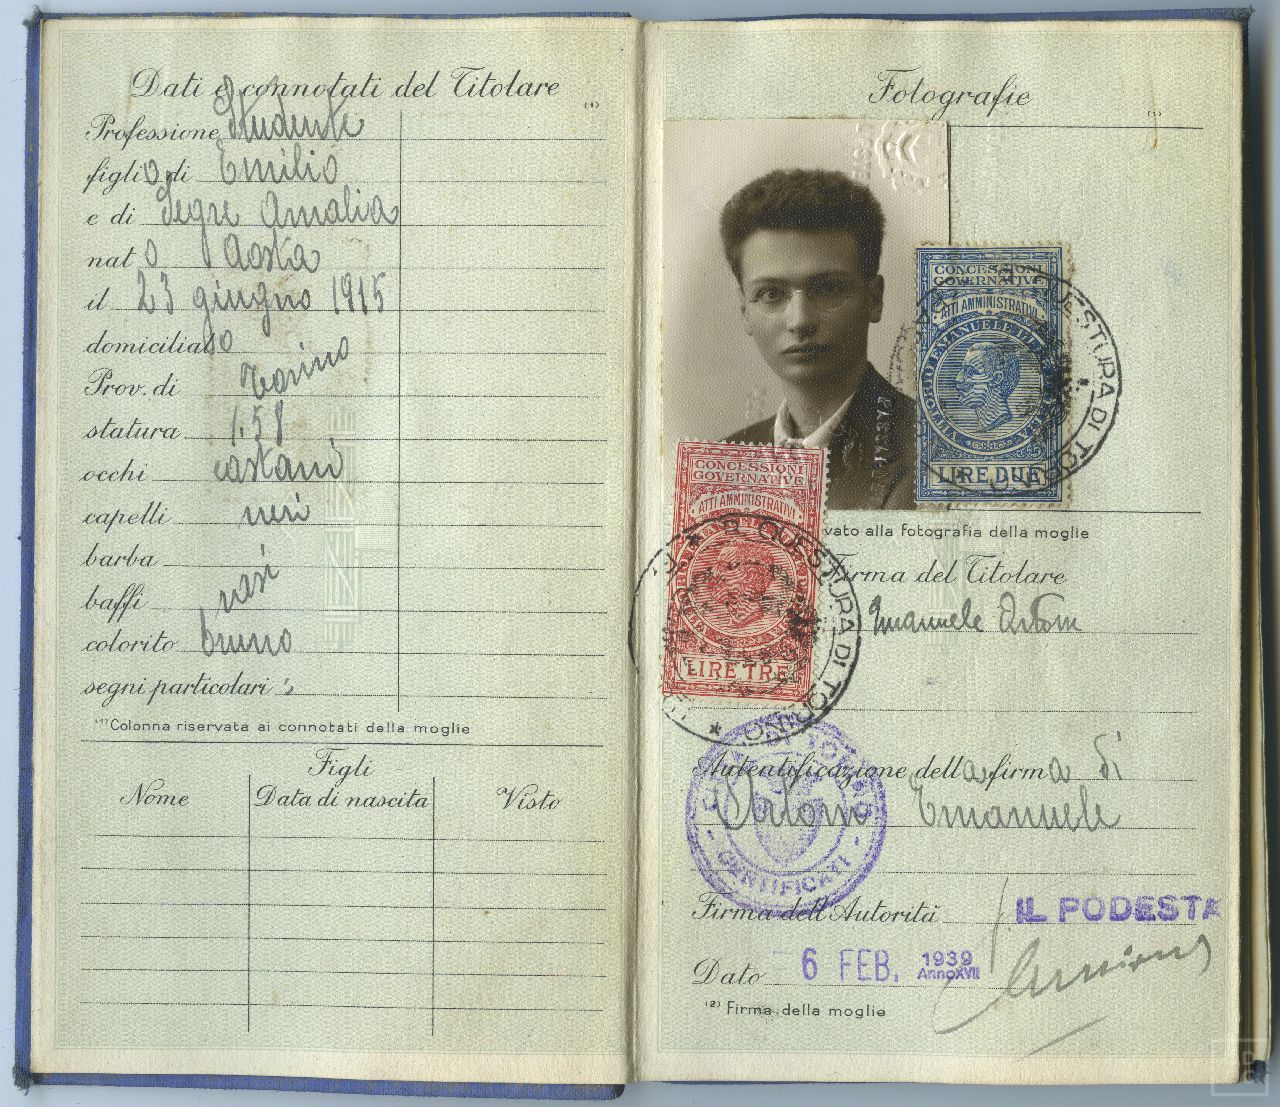 Dati e connotati del Titolare
(1)
Professione Studente
figlio di Emilio
e di Segre Amalia
nato Aosta
il 23 giugno 1915
domiciliato
Prov. di Torino
statura 1.58
occhi castani
capelli neri
barba
baffi rasi
colorito bruno
segni particolari
(1) Colonna riservata ai connotati della moglie
Figli
Nome Data di nascita Visto
Fotografie
(1)
CONCESSIONI
GOVERNATIVE
ATTI AMMINISTRATIVI
VITTORIO EMANUELE III
LIRE DUE
QUESTURA DI TORINO
CONCESSIONI
GOVERNATIVE
ATTI AMMINISTRATIVI
LIRE TRE
QUESTURA DI TORINO
vato alla fotografia della moglie
Firma del Titolare
Emanuele Artom
Autentificazione della firma di
Artom Emanuele
CITTÀ DI TORINO
CERTIFICATI
Firma dell'Autorità IL PODESTÀ
Dato 6 FEB. 1939
Anno XVII
(2) Firma della moglie